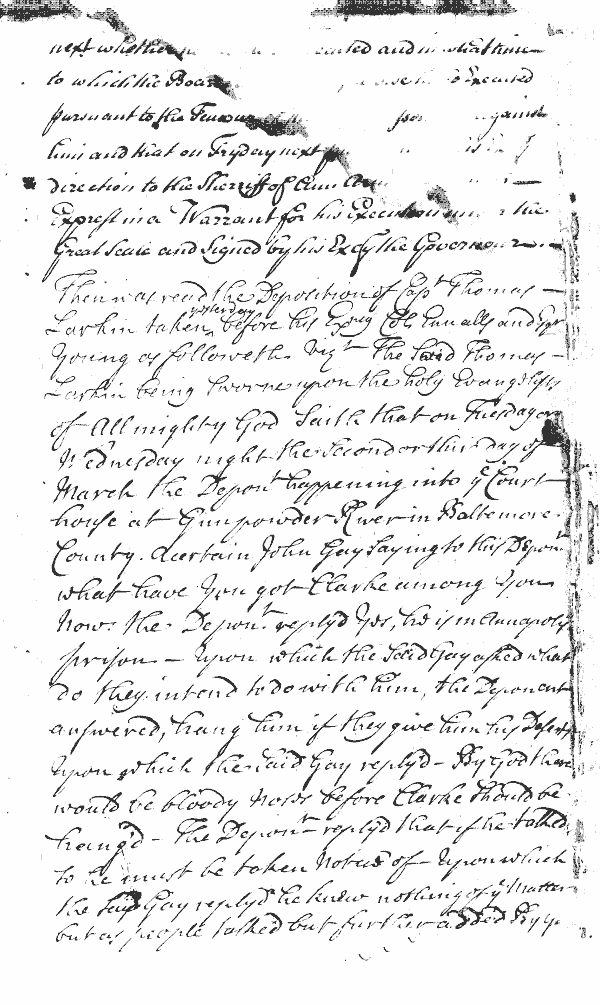 next whether executed and in what time
to which the Board be Executed
pursuant to the Tenour against
him and that on Fryday next
direction to the Sherriff of Ann
Exprest in a Warrant for his Execution the
Great Seale and Signed by his Excy the Governour
Then was read the Deposition of Capt Thomas
Larkin taken yesterday before his Excy Coll Ennalls and
Young as followeth Vizt The Said Thomas
Larkin being Sworne upon the holy Evangelists
of All mighty God Saith that on Tuesday or
Wednesday night the Second or third day of
March the Depont happening into ye Court
house at Gunpowder River in Baltemore
County. A certain John Gay saying to this Depont
what have You got Clarke among You
now. the Depont replyd Yes, he is in Annapolis
prison - upon which the Said Gay asked what
do they intend to do with him, the Deponent
answered, hang him if they give him his Deserts
upon which the Said Gay replyd - By God there
would be bloody Noses before Clarke should be
hang'd - The Depont replyd that if he talked
so he must be taken Notice of - Upon which
the said Gay replyd he knew nothing of ye Matter
but as people talked but further added By